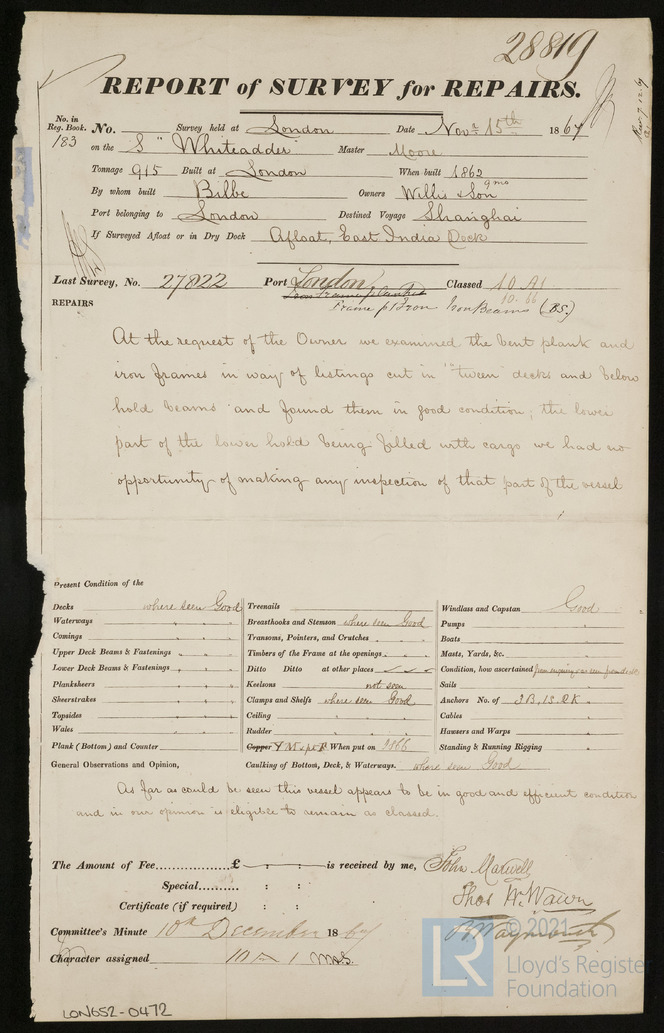 28819
REPORT of SURVEY for REPAIRS.
No. in Reg. Book. No. Survey held at London Date Novr 15th 1867
183 on the S "Whiteadder" Master Moore
Tonnage 915 Built at London When built 1862
9mo
By whom built Bilbe Owners Willis & Son
Port belonging to London Destined Voyage Shanghai
If Surveyed Afloat or in Dry Dock Afloat, East India Dock
Last Survey, No. 27822 Port London Classed 10 A1
Iron Frame planked 10.66
REPAIRS Frame pt Iron Iron Beams (BS.)
At the request of the Owner we examined the bent plank and
iron frames in way of listings cut in 'tween decks and below
hold beams and found them in good condition; the lower
part of the lower hold being filled with cargo we had no
opportunity of making any inspection of that part of the vessel
Present Condition of the
Decks where seen Good
Waterways " " "
Comings " " "
Upper Deck Beams & Fastenings " " "
Lower Deck Beams & Fastenings " " "
Planksheers " " "
Sheerstrakes " " "
Topsides " " "
Wales " " "
Plank (Bottom) and Counter " " "
Treenails
Breasthooks and Stemson where seen Good
Transoms, Pointers, and Crutches " " "
Timbers of the Frame at the openings " " "
Ditto Ditto at other places
Keelsons not seen
Clamps and Shelfs where seen Good
Ceiling " "
Rudder " "
Copper Y M When put on 1866
Caulking of Bottom, Deck, & Waterways. where seen Good
Windlass and Capstan Good
Pumps "
Boats "
Masts, Yards, &c. "
Condition, how ascertained from enquiry
Sails "
Anchors No. of 3B, 1S, 2K "
Cables "
Hawsers and Warps "
Standing & Running Rigging "
General Observations and Opinion,
As far as could be seen this vessel appears to be in good and efficient condition
and in our opinion is eligible to remain as classed.
The Amount of Fee £ : : is received by me, John Maxwell
Special : : Thos W. Wawn
Certificate (if required) : :
Committee's Minute 10th December 1867
Character assigned 10 A 1
LON652-0472
LR © 2021
Lloyd's Register
Foundation